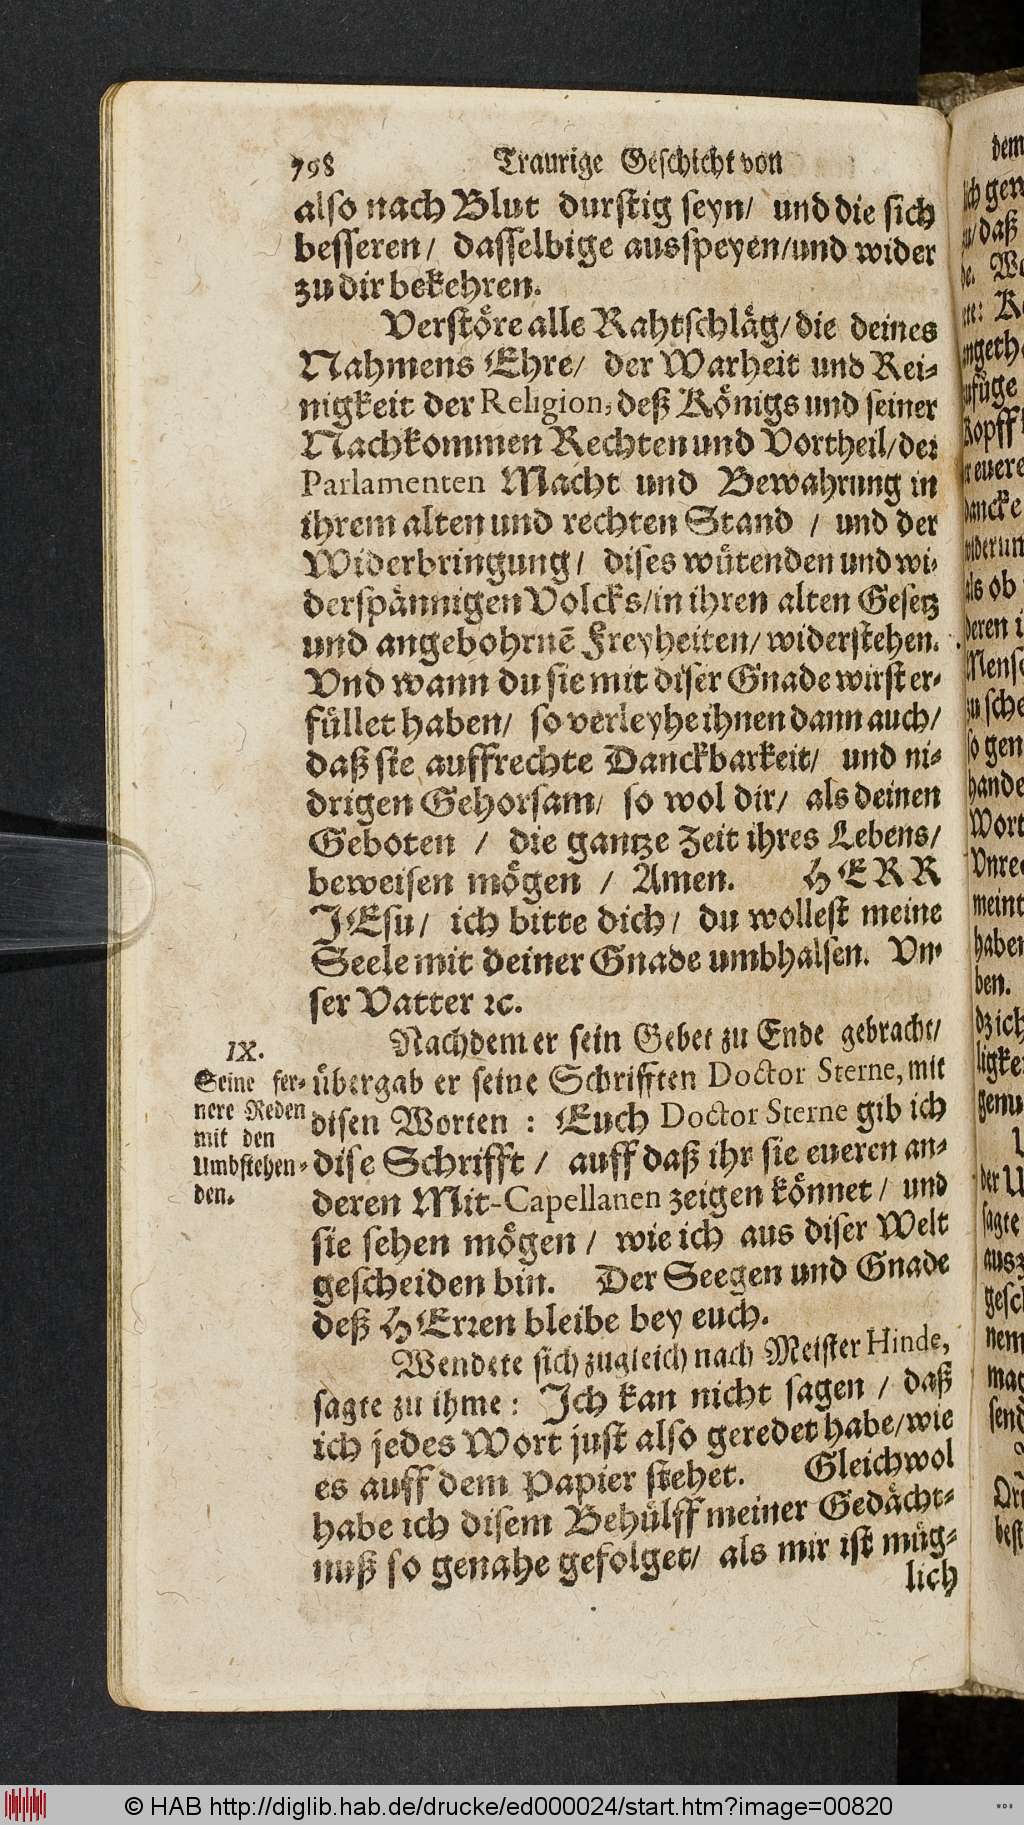 798 Traurige Geschicht von
also nach Blut durstig seyn/ und die sich
besseren/ dasselbige ausspeyen/und wider
zu dir bekehren.
Verstöre alle Rahtschläg/die deines
Nahmens Ehre/ der Warheit und Rei-
nigkeit der Religion, deß Königs und seiner
Nachkommen Rechten und Vortheil/der
Parlamenten Macht und Bewahrung in
ihrem alten und rechten Stand / und der
Widerbringung/ dises wütenden und wi-
derspännigen Volcks/in ihren alten Gesetz
und angebohrnē Freyheiten/ widerstehen.
Vnd wann du sie mit diser Gnade wirst er-
füllet haben/ so verleyhe ihnen dann auch/
daß sie auffrechte Danckbarkeit/ und ni-
drigen Gehorsam/ so wol dir/ als deinen
Geboten / die gantze Zeit ihres Lebens/
beweisen mögen / Amen. HERR
JEsu/ ich bitte dich/ du wollest meine
Seele mit deiner Gnade umbhalsen. Vn-
ser Vatter ꝛc.
Nachdem er sein Gebet zu Ende gebracht/
übergab er seine Schrifften Doctor Sterne, mit
disen Worten : Euch Doctor Sterne gib ich
dise Schrifft / auff daß ihr sie eueren an-
deren Mit-Capellanen zeigen könnet / und
sie sehen mögen / wie ich aus diser Welt
gescheiden bin. Der Seegen und Gnade
deß HErren bleibe bey euch.
Wendete sich zugleich nach Meister Hinde,
sagte zu ihme: Ich kan nicht sagen / daß
ich jedes Wort just also geredet habe/wie
es auff dem Papier stehet. Gleichwol
habe ich disem Behülff meiner Gedächt-
nuß so genahe gefolget/ als mir ist müg-
lich
IX.
Seine fer-
nere Reden
mit den
Umbstehen-
den.
dem
ich
/daß
angeth
zufüge
Kopff
euere
dancke
widerum
als ob
deren
Mensc
zu sche
so gen
hande
Wort
Vnrec
meint
haben
ben.
dz ich
ligke
genu
der U
sagte
gesch
nem
mac
send
best
© HAB http://diglib.hab.de/drucke/ed000024/start.htm?image=00820